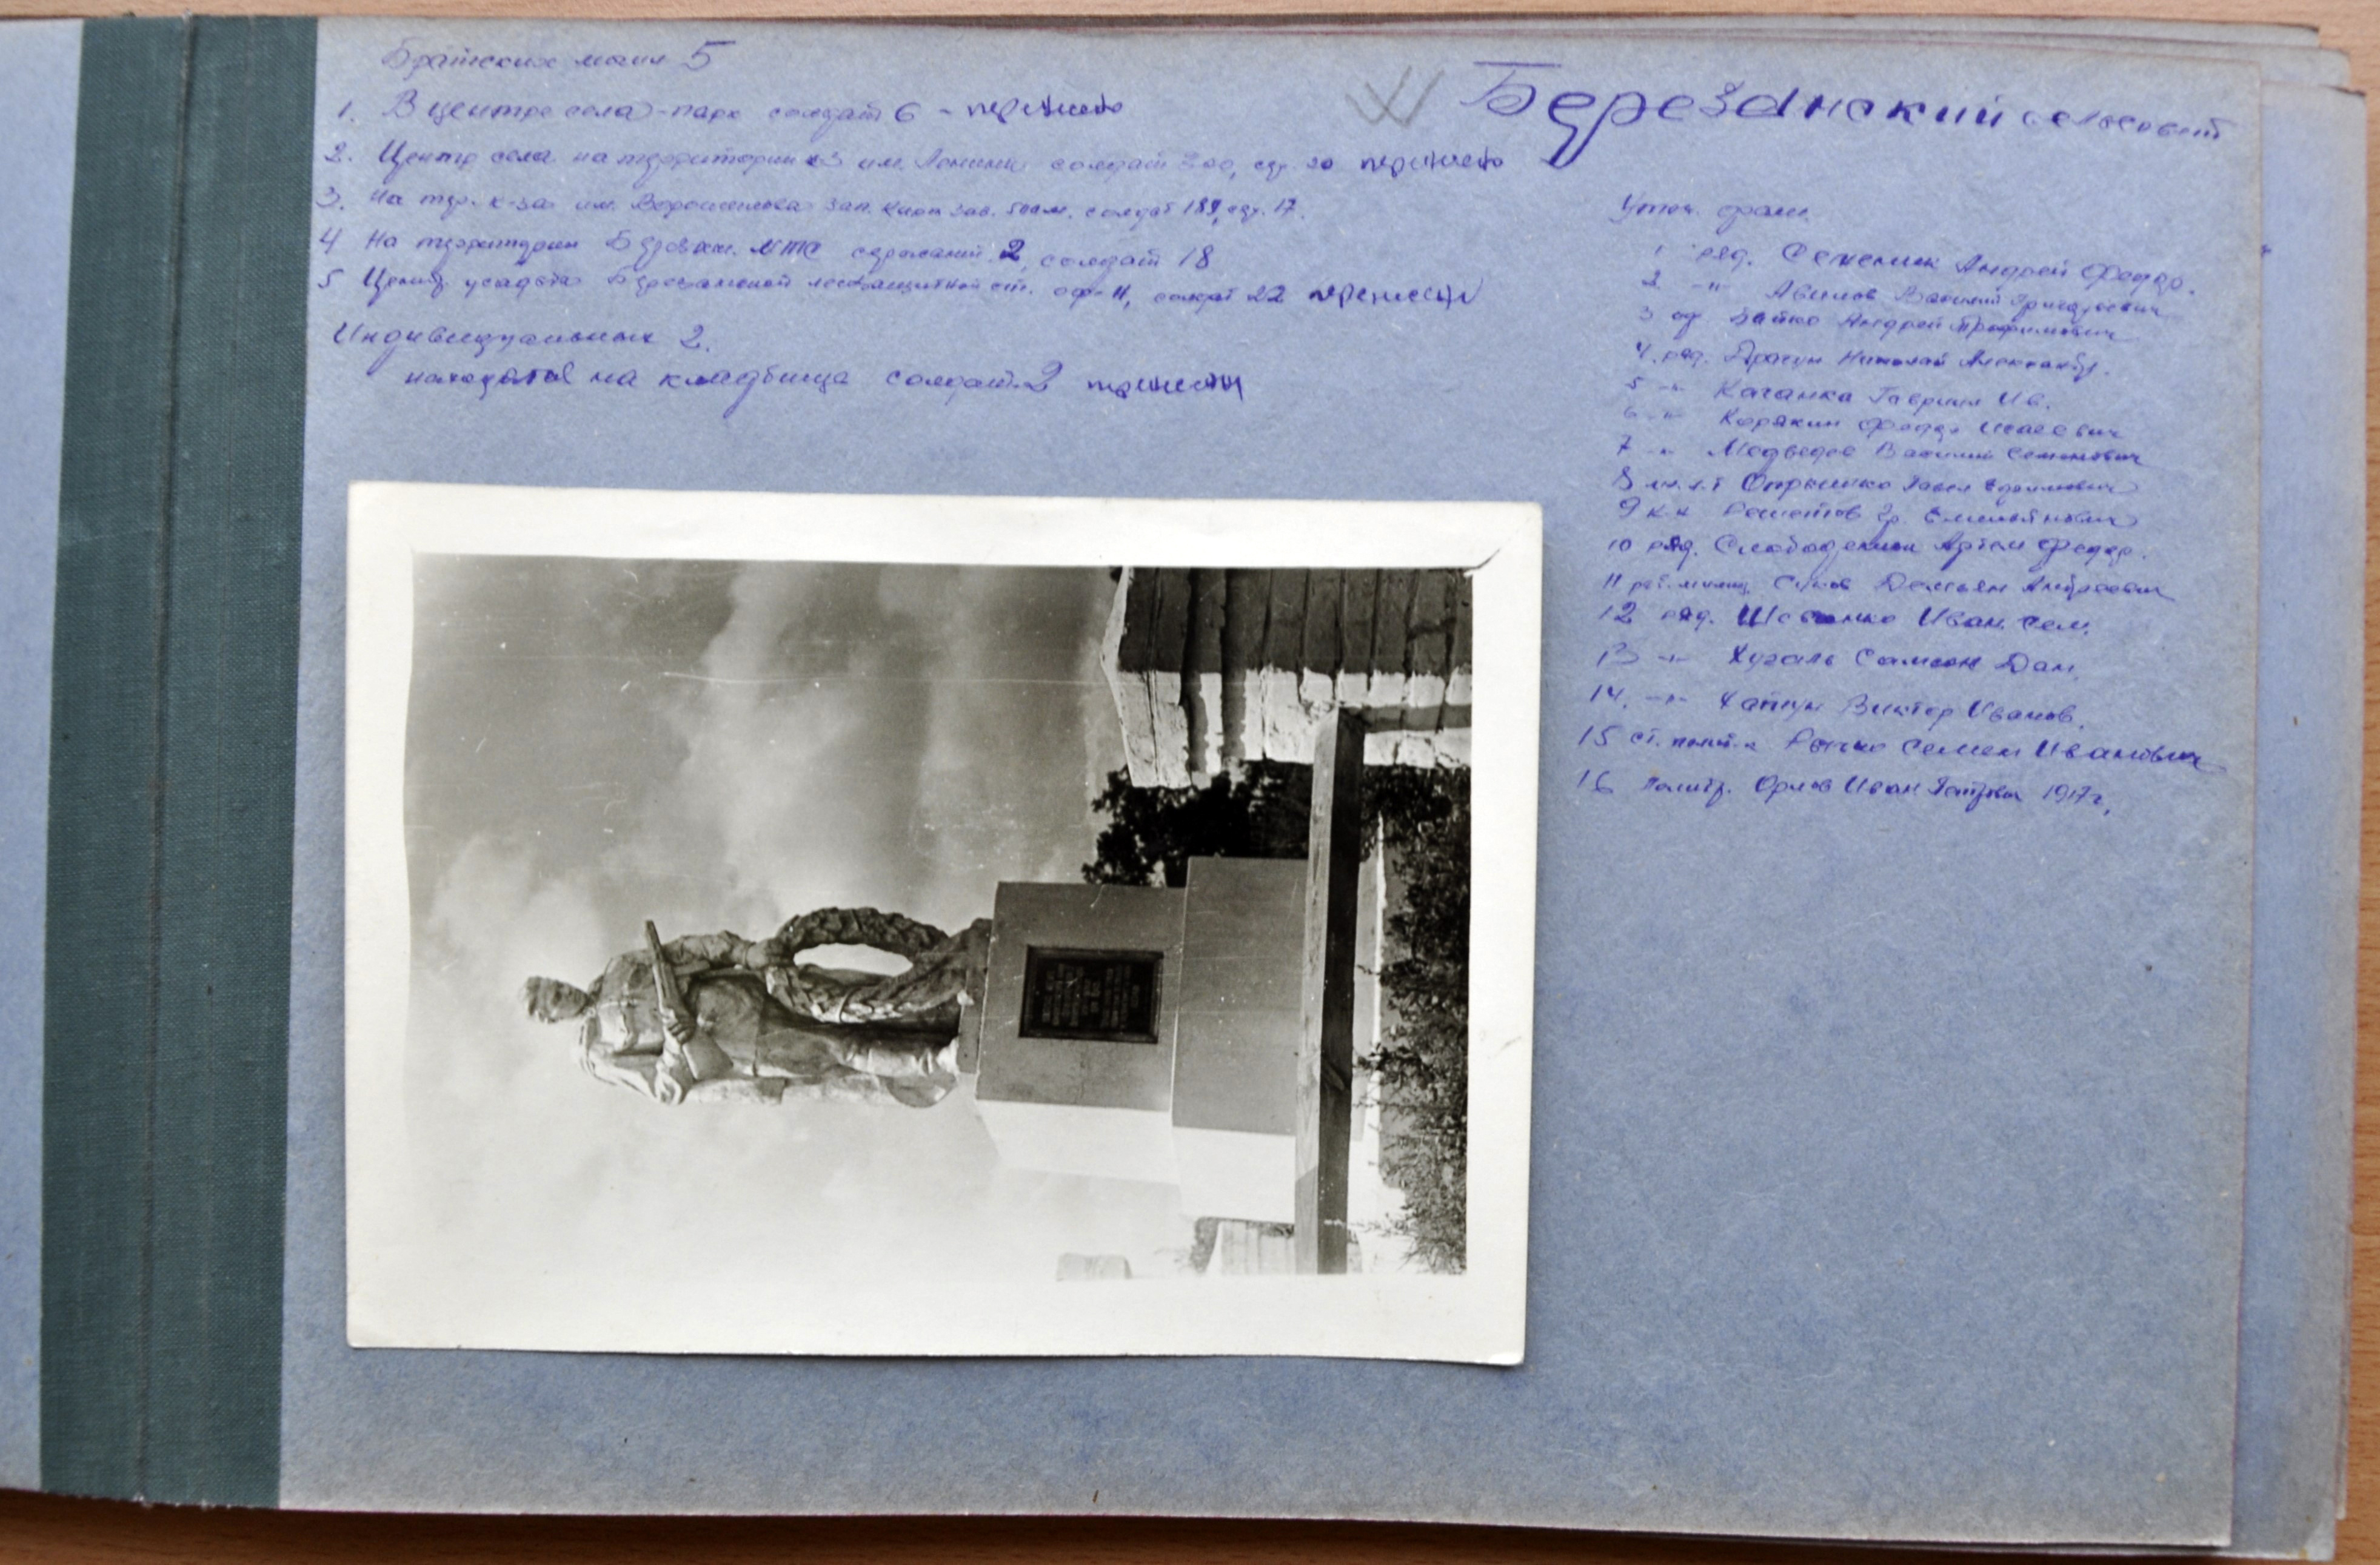 Братских могил 5
Березанский сельсовет
1. В центре села - парк солдат 6 - перенесено
2. Центр села на территории к-з им. Ленина солдат 200, сер. 20 перенесено
3. На тер. к-за им. Ворошилова зап. кирп. зав. 500 м. солдат 189, сер. 17.
4 На территории МТС сержант. 2, солдат 18
5 Центр. усадьба Березанской лесозащитной ст. оф - 11, солдат 22 перенесены
Индивидуальных 2.
находятся на кладбище солдат. 2 перенесены
Уточ. фам.
1 ряд. Семеник Андрей Федор.
2 -"- Авилов Василий Григорьевич
3 оф Зайко Андрей Трофимович
4. ряд. Николай Александр.
5 -"- Каганка Гаврил Ив.
6 -"- Корякин Федор Исаевич
7 -"- Медведев Василий Семенович
8 мл. л-т Опрышко Павел
9 к-к Решетов Гр. Емельянович
10 ряд. Слободеник Артем Федор.
11 раб. милиц. Демьян Андреевич
12 ряд. Шевченко Иван Сем.
13 -"- Самсон Дан.
14. -"- Хапчун Виктор Иванов.
15 ст. полит-к Семен Иванович
16 Политр. Орлов Иван Петрович 1917 г.